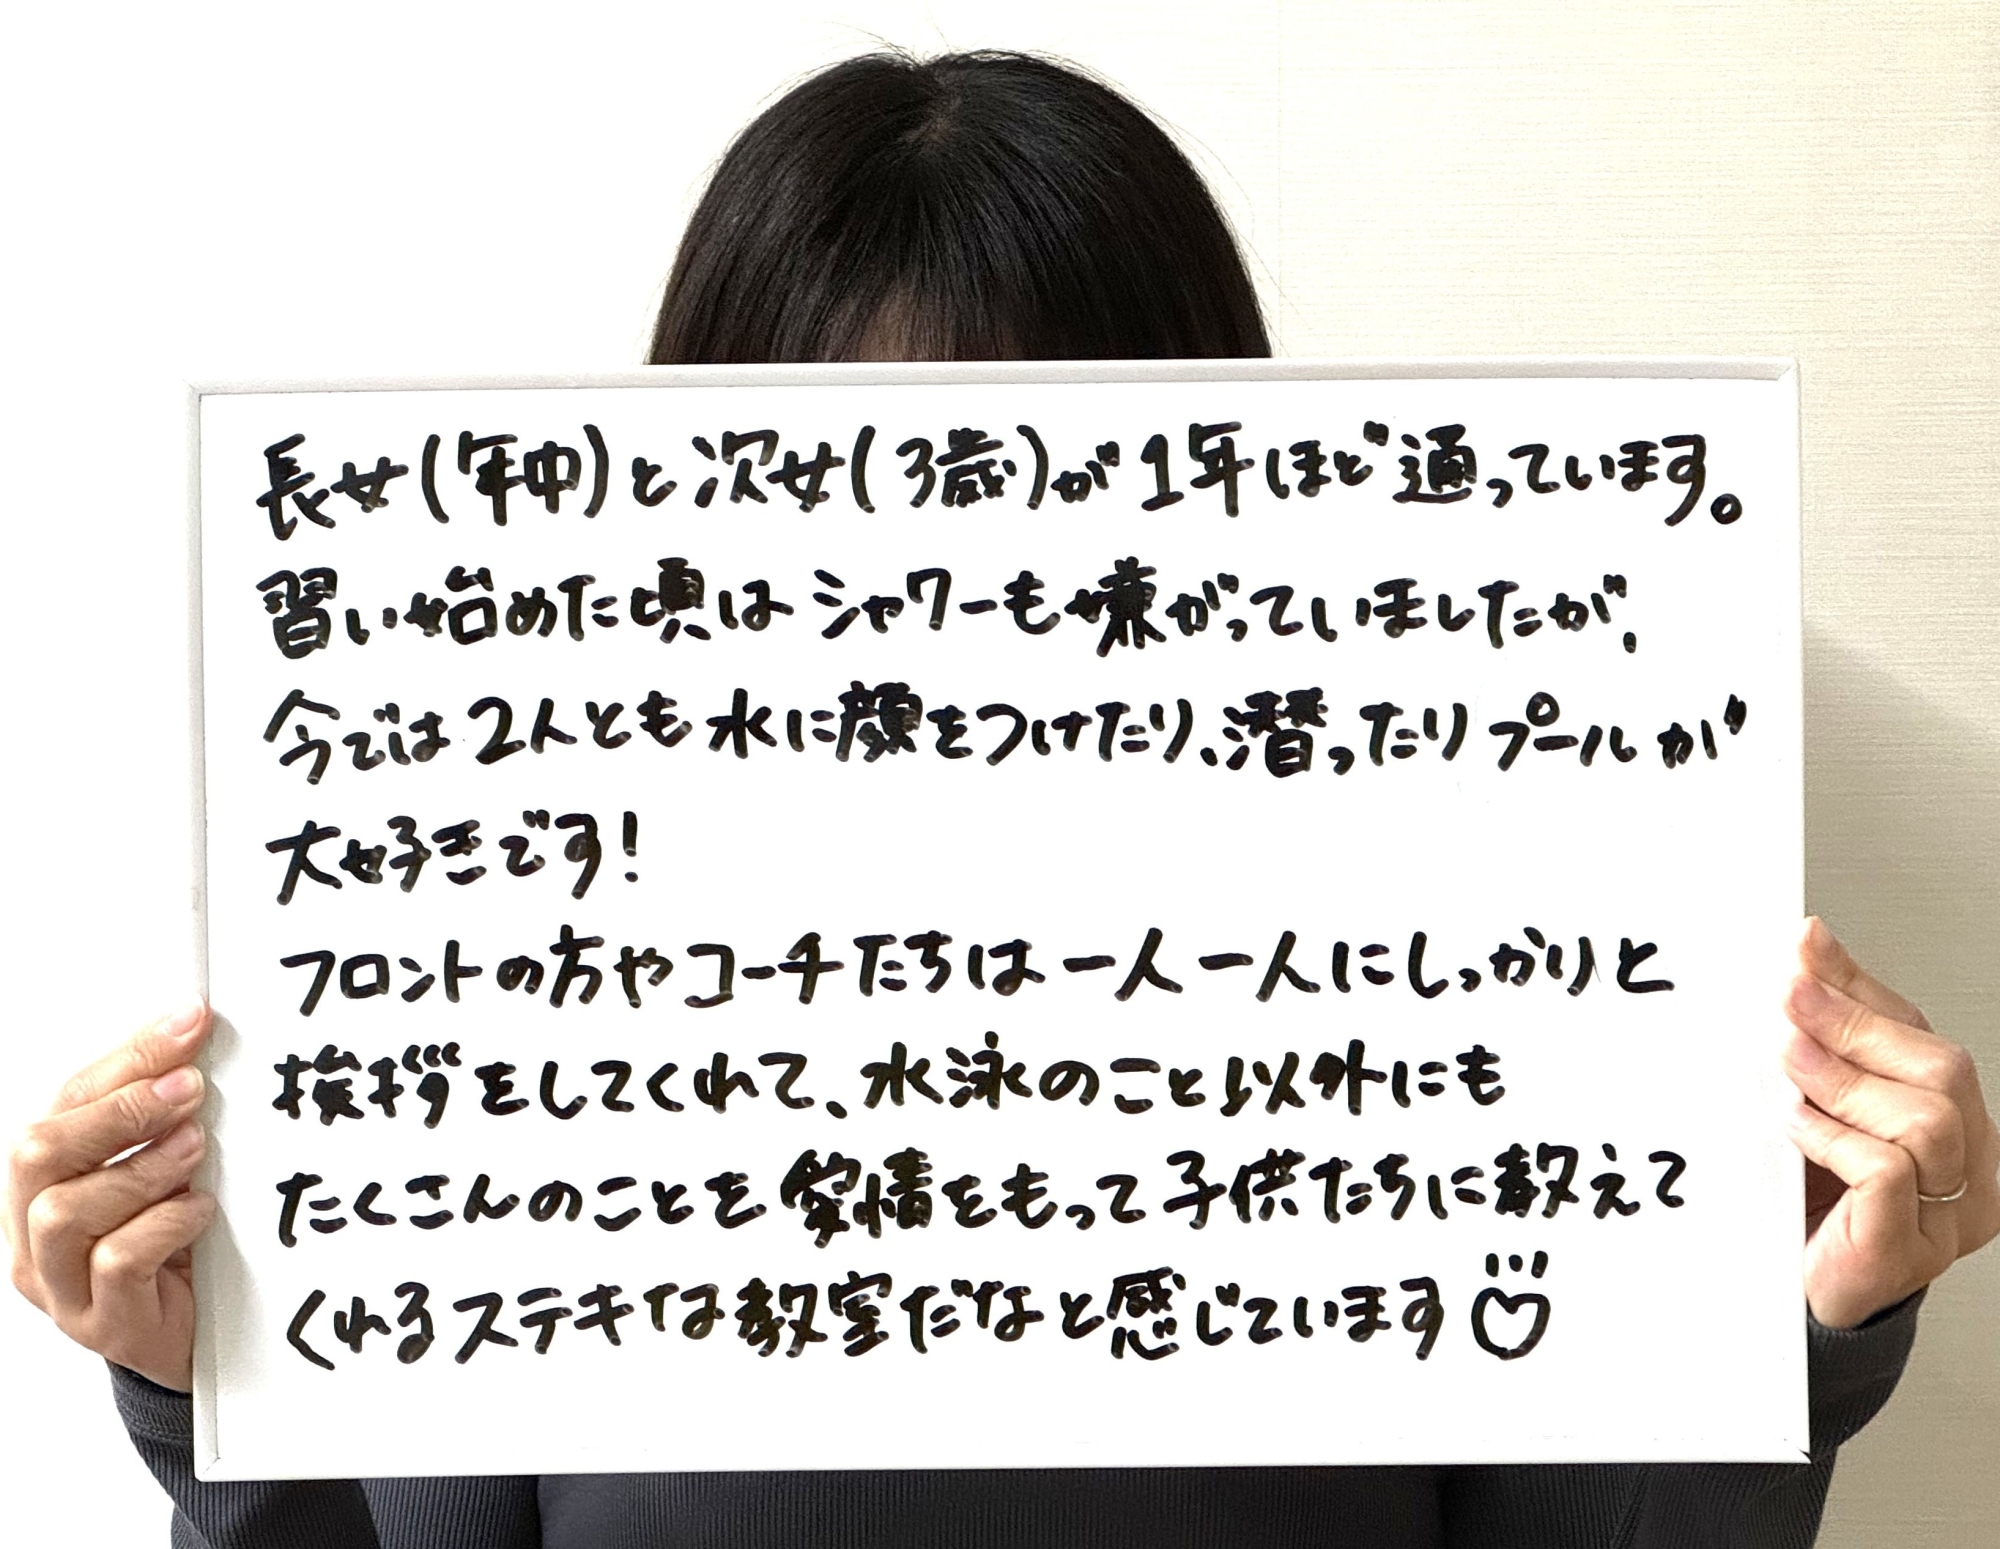 長女(年中)と次女(3歳)が1年ほど通っています。
習い始めた頃はシャワーも嫌がっていましたが、
今では2人とも水に顔をつけたり、潜ったりプールが
大好きです!
フロントの方やコーチたちは一人一人にしっかりと
挨拶をしてくれて、水泳のこと以外にも
たくさんのことを愛情をもって子供たちに教えて
くれるステキな教室だなと感じています